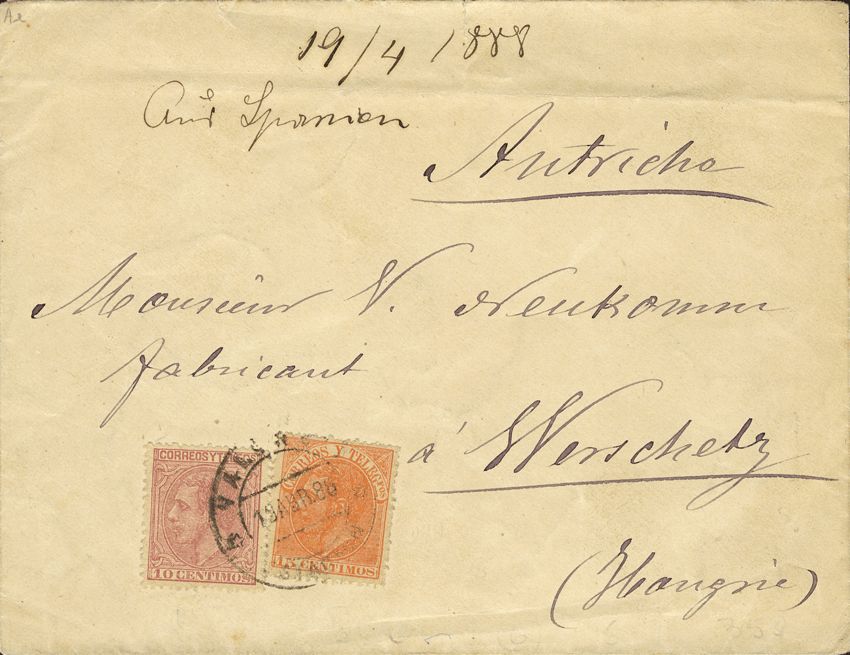 19/4 1888
Aus Spanien
Autriche
Monsieur V. Neukomm
fabricant
à Werschetz
(Hongrie)
CORREOS Y TELEGFOS
10 CENTIMOS
CORREOS Y TELEGFOS
15 CENTIMOS